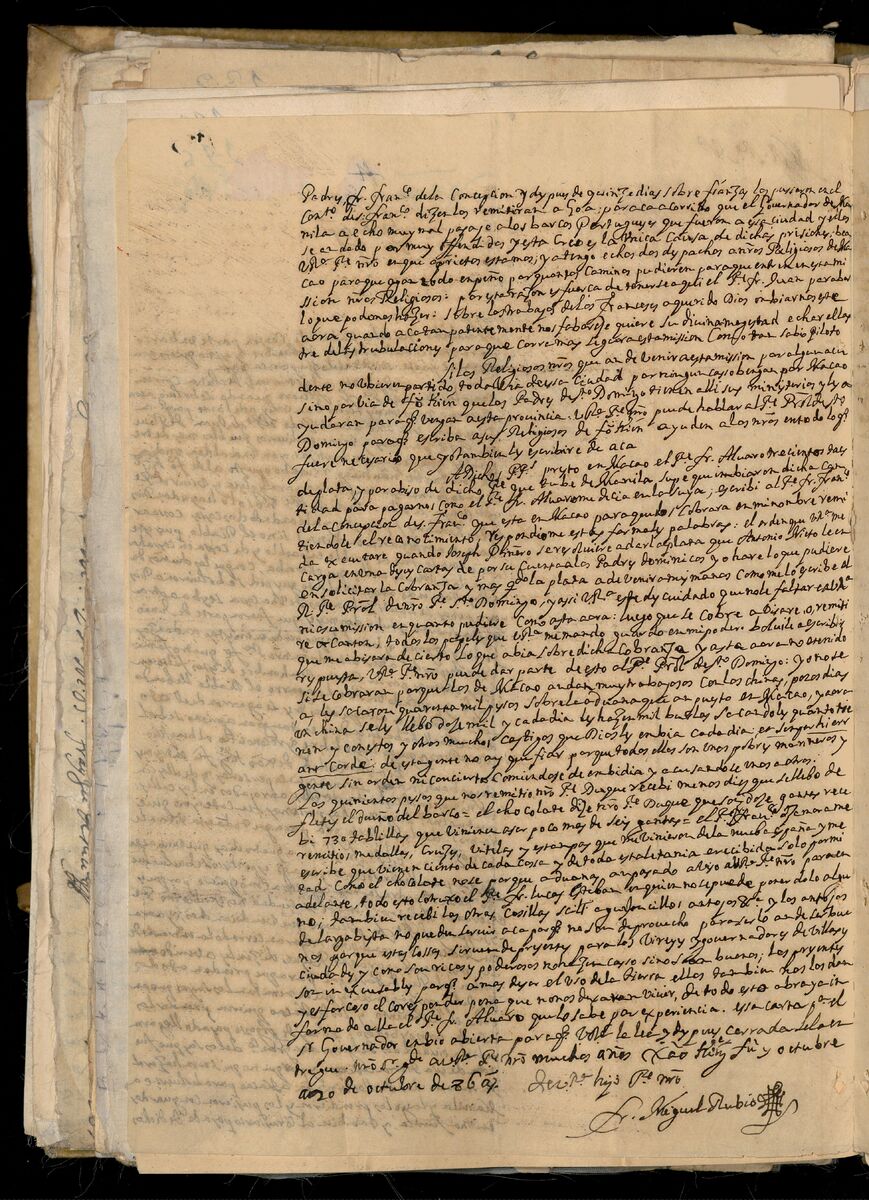 Padres, fr. Franco de la Concepcion, y dspues de quinze dias sobre fianzas los pusieron en el
Conto de s. Franco dizen los remitiran a Goa; por aca a corrido que el Governador de Ma
nila a echo muy mal pasaje a los barcos Portugueses que fueron a essa ciudad y ellos
se an dado por muy offendidos y esta creo es la Unica causa de dichas prisiones; bea
V Pe nro en que aprietos estamos; ya tengo echos dos despachos a nros Religiosos de Ma
cao para que agan todo enpeño por quantos caminos pudieren para que entren en esta mi
ssion nros Religiosos: por esta razon es fuerca detenerse aqui el Pe fr. Juan para ber
lo que podemos hazer: sobre los trabajos de los Franceses a querido Dios embiarnos este
aora quando aca tan patentemente nos faborese quiere su divina magestad echar ellas
tre de las tribulaciones para que corra mas segura esta mission como tan sabio Piloto
Si los Religiosos nros que an de venir a esta mission por algun acci
dente no ubieren partido todabia de essa ciudad por ningun casso bengan por Macao
sino por bia de foKien que los Padres de sto Domingo tienen alli sus ministerios y les a
yudaran para q vengan a esta provincia. V Pe nro puede hablar al Pe Prol de sto
Domingo para q escriba a sus Religiosos de foKien ayuden a los nros en todo lo q
fuere necesario que yo tambien les escribire de aca
A Dichos Ps presto en Macao el Pe fr. Alvaro trecientos taes
de plata, y por abiso de dicho Pe que tube de Manila, supe que inbiaron dicha can
tidad para pagarnos como el Pe fr. Alvaro me decia en la suya; escribi al Pe fr. Franco
de la Concepcion de s. Franco que esta en Macao para que los cobrara en mi nombre remi
tiendole el reconocimiento, respondiome estas formales palabras: el orden que V me
da executare quando Joseph Pinero se resolviere a dar la plata que Antonio Nieto le en
carga en una de sus cartas de por su cuenta a los Padres dominicos y yo hare lo que pudiere
en solicitar la cobranza y mas q la plata a de venir a muy manos como me lo escribe el
R. Pe Prol de nro Pe sto Domingo, y assi V este descuidado que no le faltare en esta
ni essa mission en quanto pudiere como asta aora: luego que se cobre abisare o remiti
re a Canton, todos los papeles que V me mando guardo en mi poder. bolvile a escribir
que me abisara de cierto lo que abia sobre dicha cobranza y asta aora no e tenido
respuesta, V Pe nro puede dar parte de esto al Pe Prol de sto Domingo: yo no se
si se cobraran porque los de Macao andan muy trabajosos con los chinas, pocos dias
a, les sacaron quarenta mil pesos sobre la aduana que an puesto en Macao, y aora
un china se les llebo dose mil y cada dia les hazen mil burlas sacandoles quanto tie
nen y con estos y otros muchos castigos que Dios les embia cada dia; 
 corde: de esta gente no ay que fiar porque todos ellos son unos pobres marineros y
gente sin orden ni concierto comiendose de embidia y acusandose unos a otros:
Los quinientos pesos que nos remitio nro Pe Duque recebi menos dies que se llebo de
fletes el dueño del barco = el chocolate dize nro Pe Duque que son dose gantes rece
bi 730 tablillas, que vinieron a ser poco mas de seis gantes = el Pe Franco Zamora me
remitio; medallas, Cruzes, Vitelas y estampas que me vinieron de la nueba españa y me
escribe que vienen ciento de cada cosa y de toda esta letania e recibido solo por mi
tad como el chocolate no se porque aduanas an pasado abiso a V Pe nro para en
adelante, todo esto lo truxo el Pe fr. Lucas Esteban en quien no se puede poner dolo algu
no; tambien recebi las otras cosillas scilt aguiloncillos antojos &a y los antojos
de larga bista no pueden servir aca para q no son de provecho para serlo an de ser bue
nos porque estas cossas sirven de presentes para los Vireys y governadores de Villas y
ciudades y como son ricos y poderosos no hazen casso sino son buenos; los presentes
son inexcusables porq a mas de ser el uso de la tierra ellos tambien nos los dan
y es forcoso el corresponder pena que no nos dexaran vivir, de todo esto abra ya in
formado alla el Pe fr. Alvaro que lo sabe por experiencia. essa carta pa el
sr Governador embio abierta para q V la lea y despues cerrada se la en
tregue. nro sr gde a V Pe nro muchos años Xao King fu y octubre
a 20 de octubre de 86 as
de V hijo Pe nro
fr. Miguel Rubio